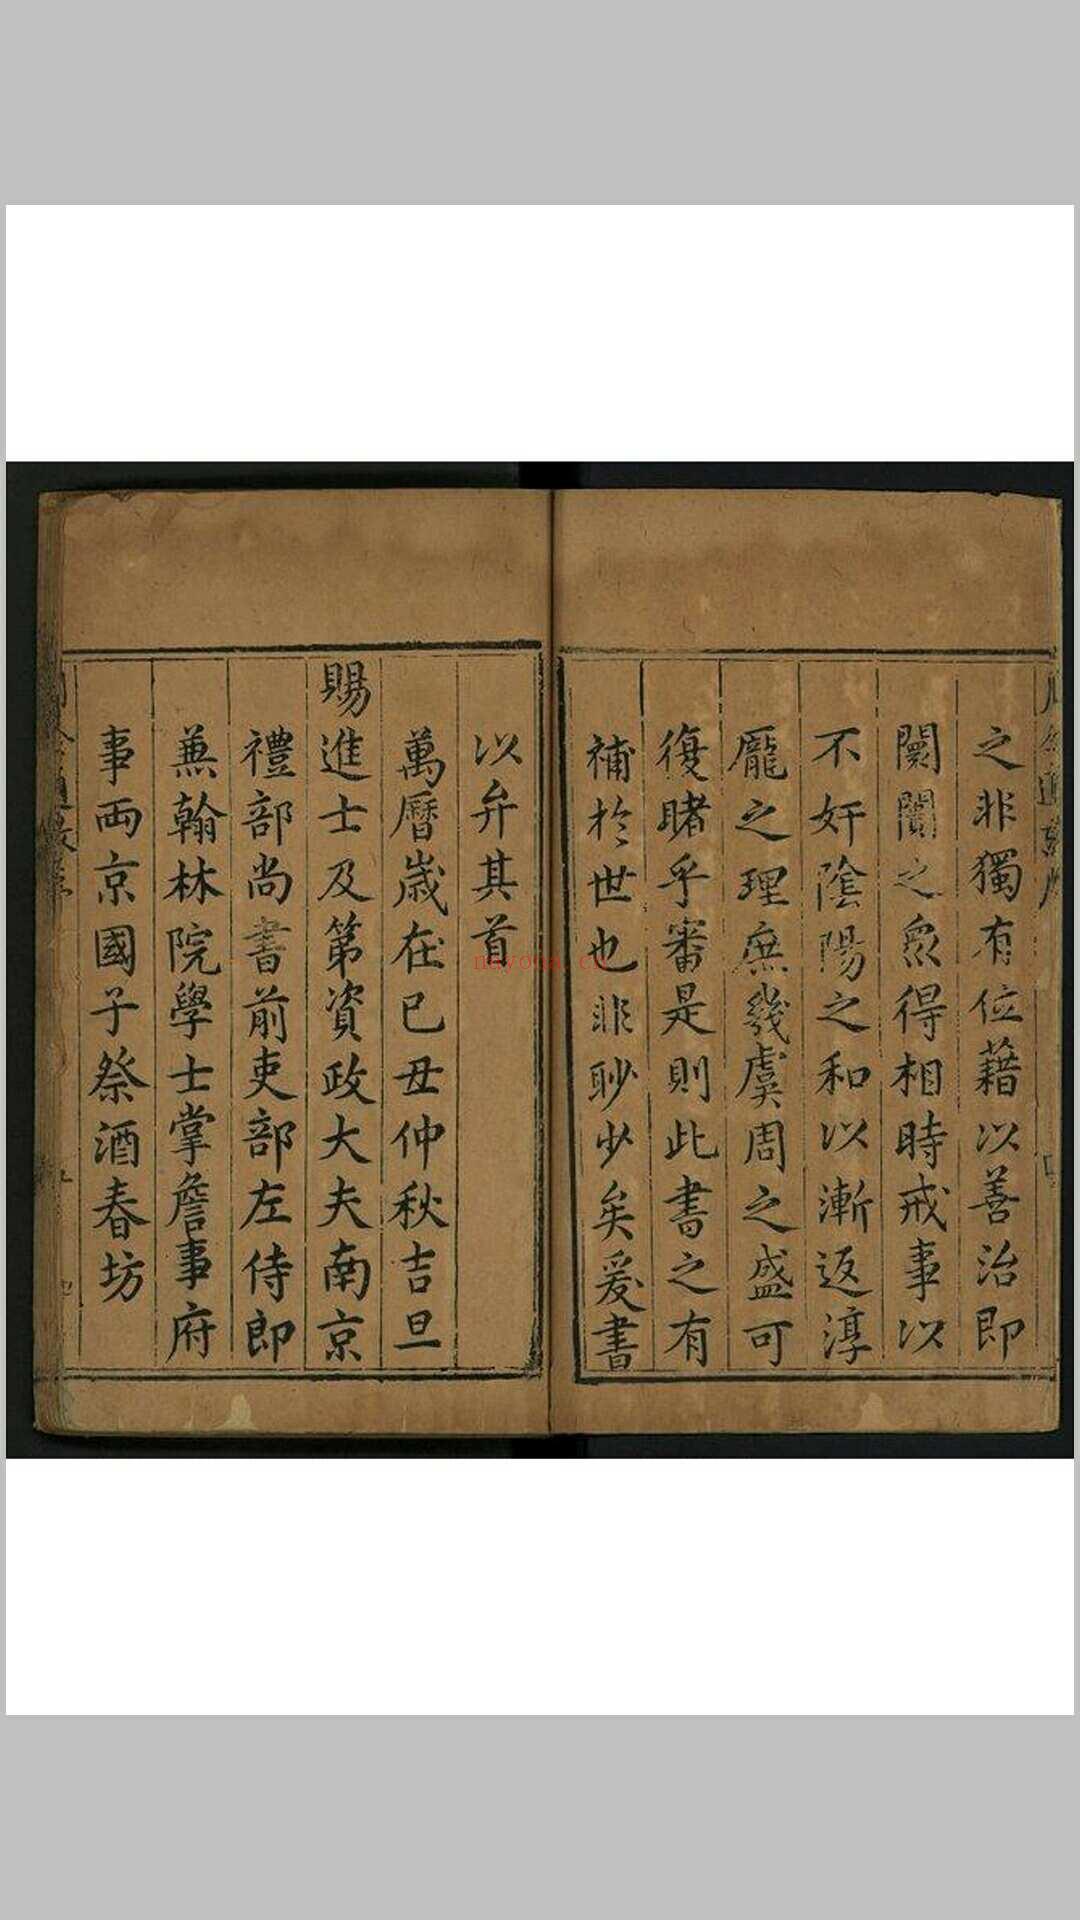 之非獨有位藉以善治即
闤闠之衆得相時戒事以
不奸隂陽之和以漸返淳
龐之理庶幾虞周之盛可
復睹乎審是則此書之有
補扵世也非眇少矣爰書
以弁其首
萬曆嵗在已丑仲秋吉旦
賜進士及第資政大夫南京
禮部尚書前吏部左侍郎
兼翰林院學士掌詹事府
事兩京國子祭酒春坊
nayona.cn